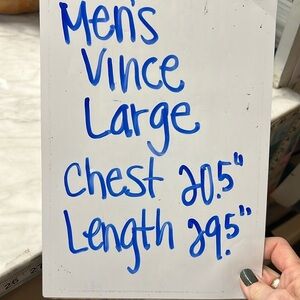 Men's
Vince
Large
Chest 20.5"
Length 29.5"
26